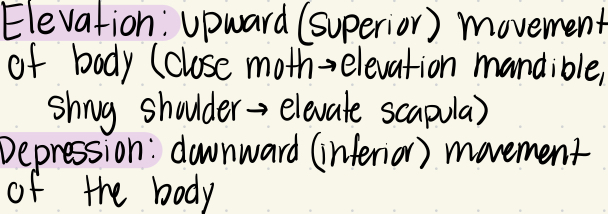 Elevation: upward (superior) movement
of body (close moth→elevation mandible,
shrug shoulder→ elevate scapula)
Depression: downward (inferior) movement
of the body